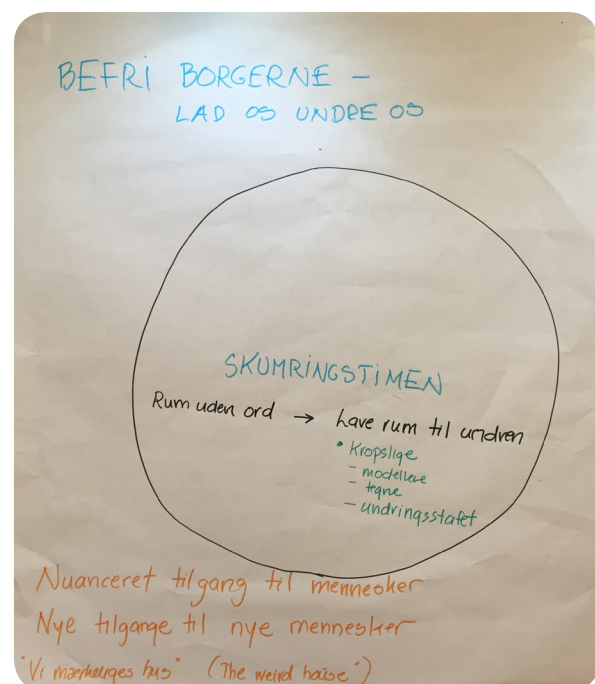 BEFRI BORGERNE –
LAD OS UNDRE OS
SKUMRINGSTIMEN
Rum uden ord → have rum til undren
• Kropslige
- modellere
- tegne
- undringsstafet
Nuanceret tilgang til mennesker
Nye tilgange til nye mennesker
"Vi mærkeliges hus" (The weird house")